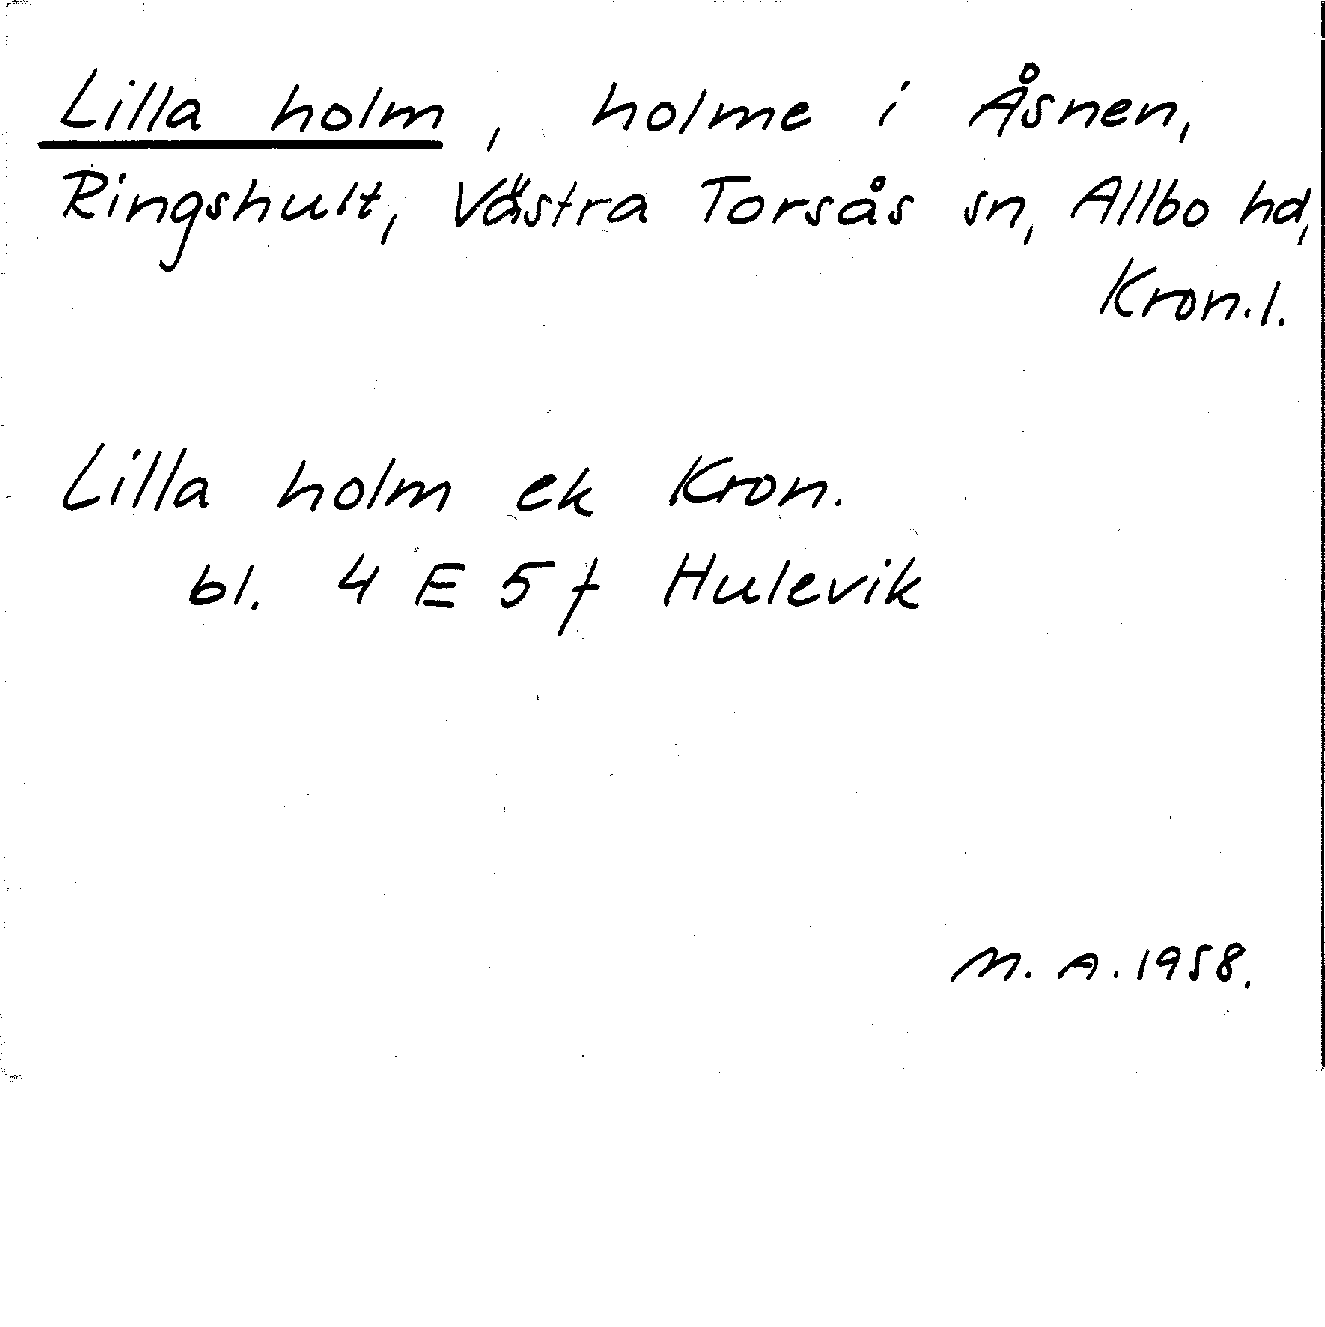 Lilla holm, holme i Åsnen,
Ringshult, Västra Torsås sn, Allbo hd,
Kron.l.
Lilla holm ek Kron.
bl. 4 E 5 f Hulevik
M. A. 1958.